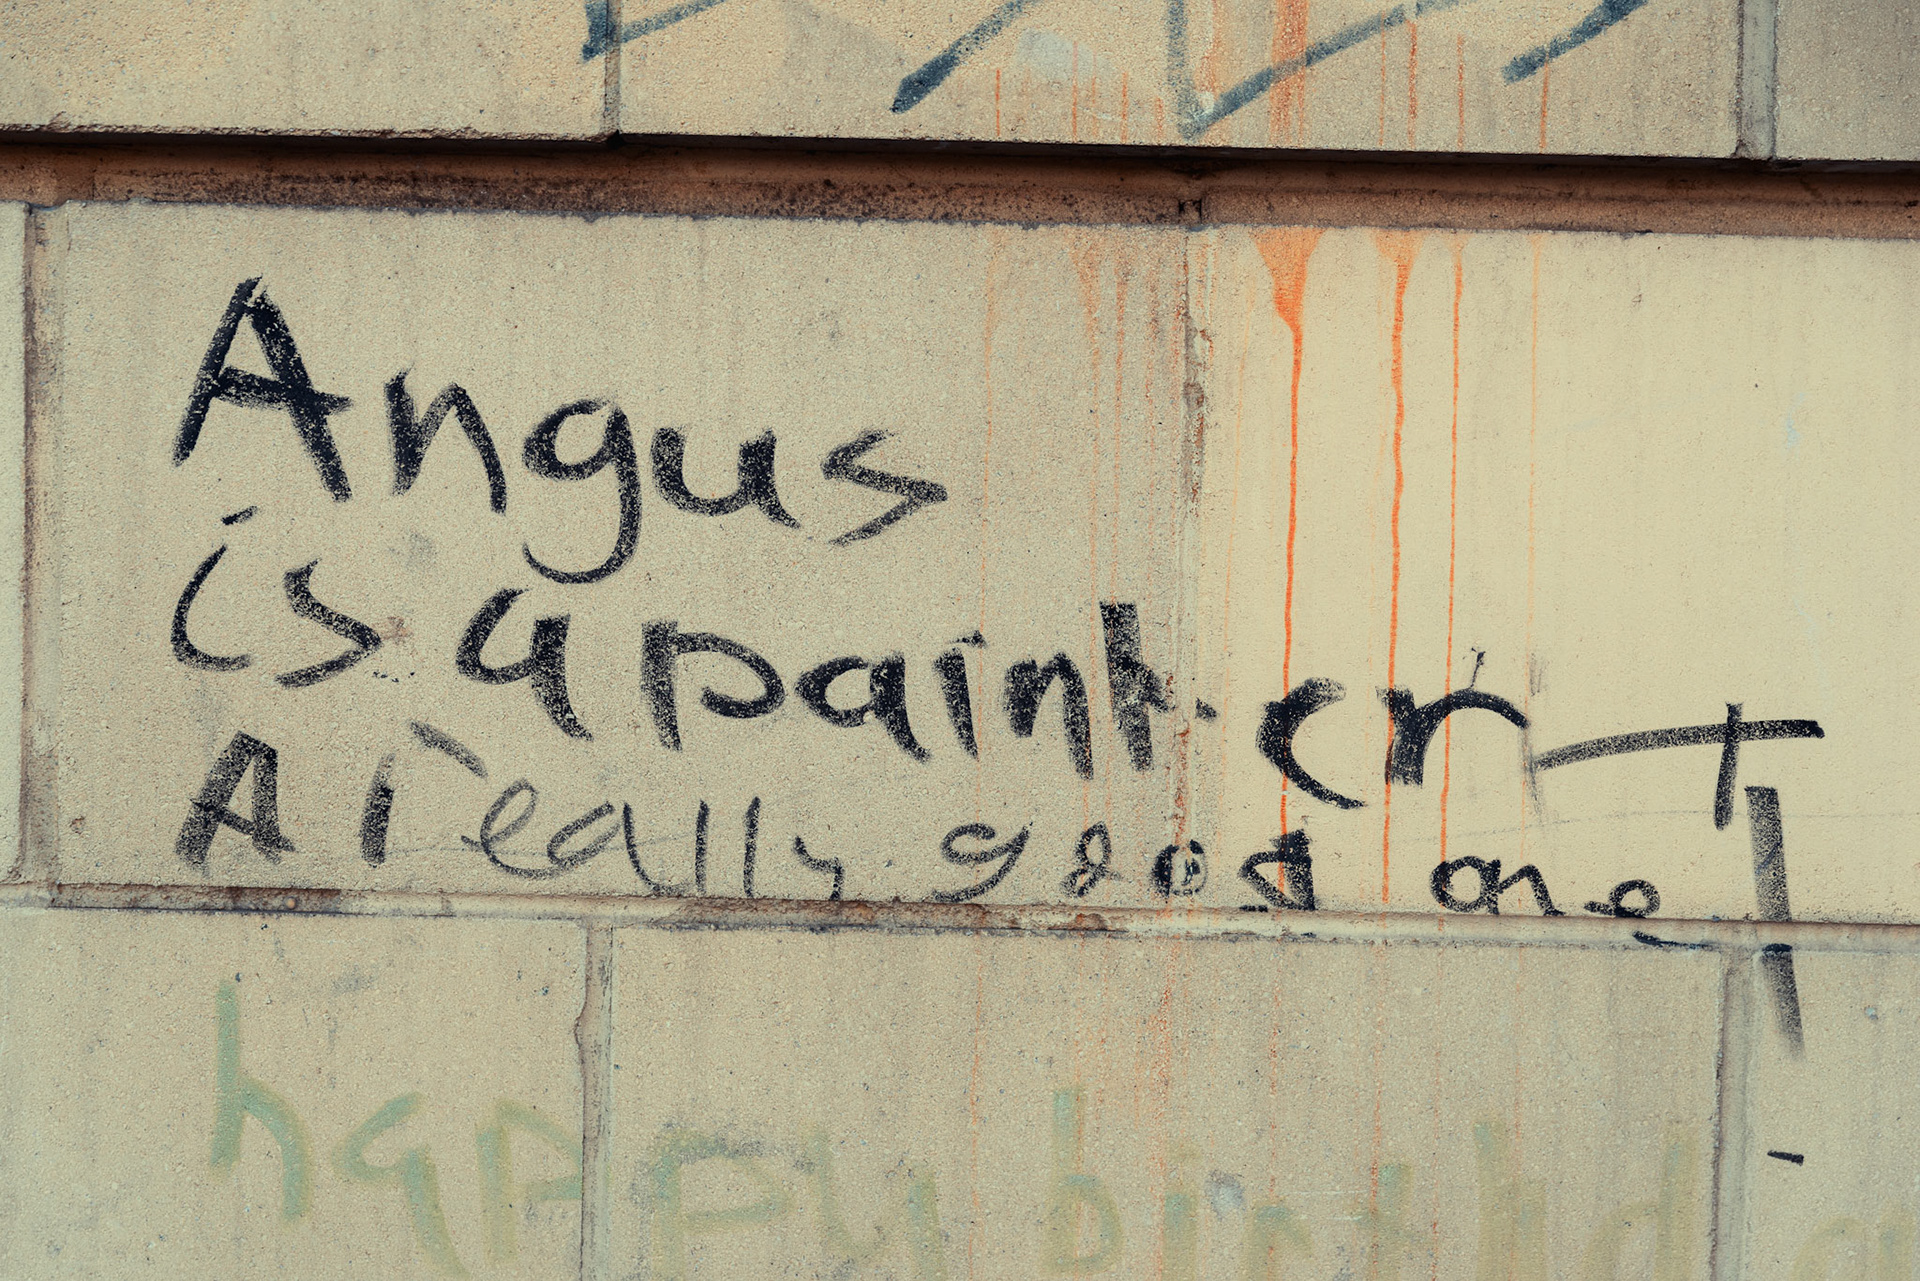 Angus
is a painter
A really good one!
happy birthda